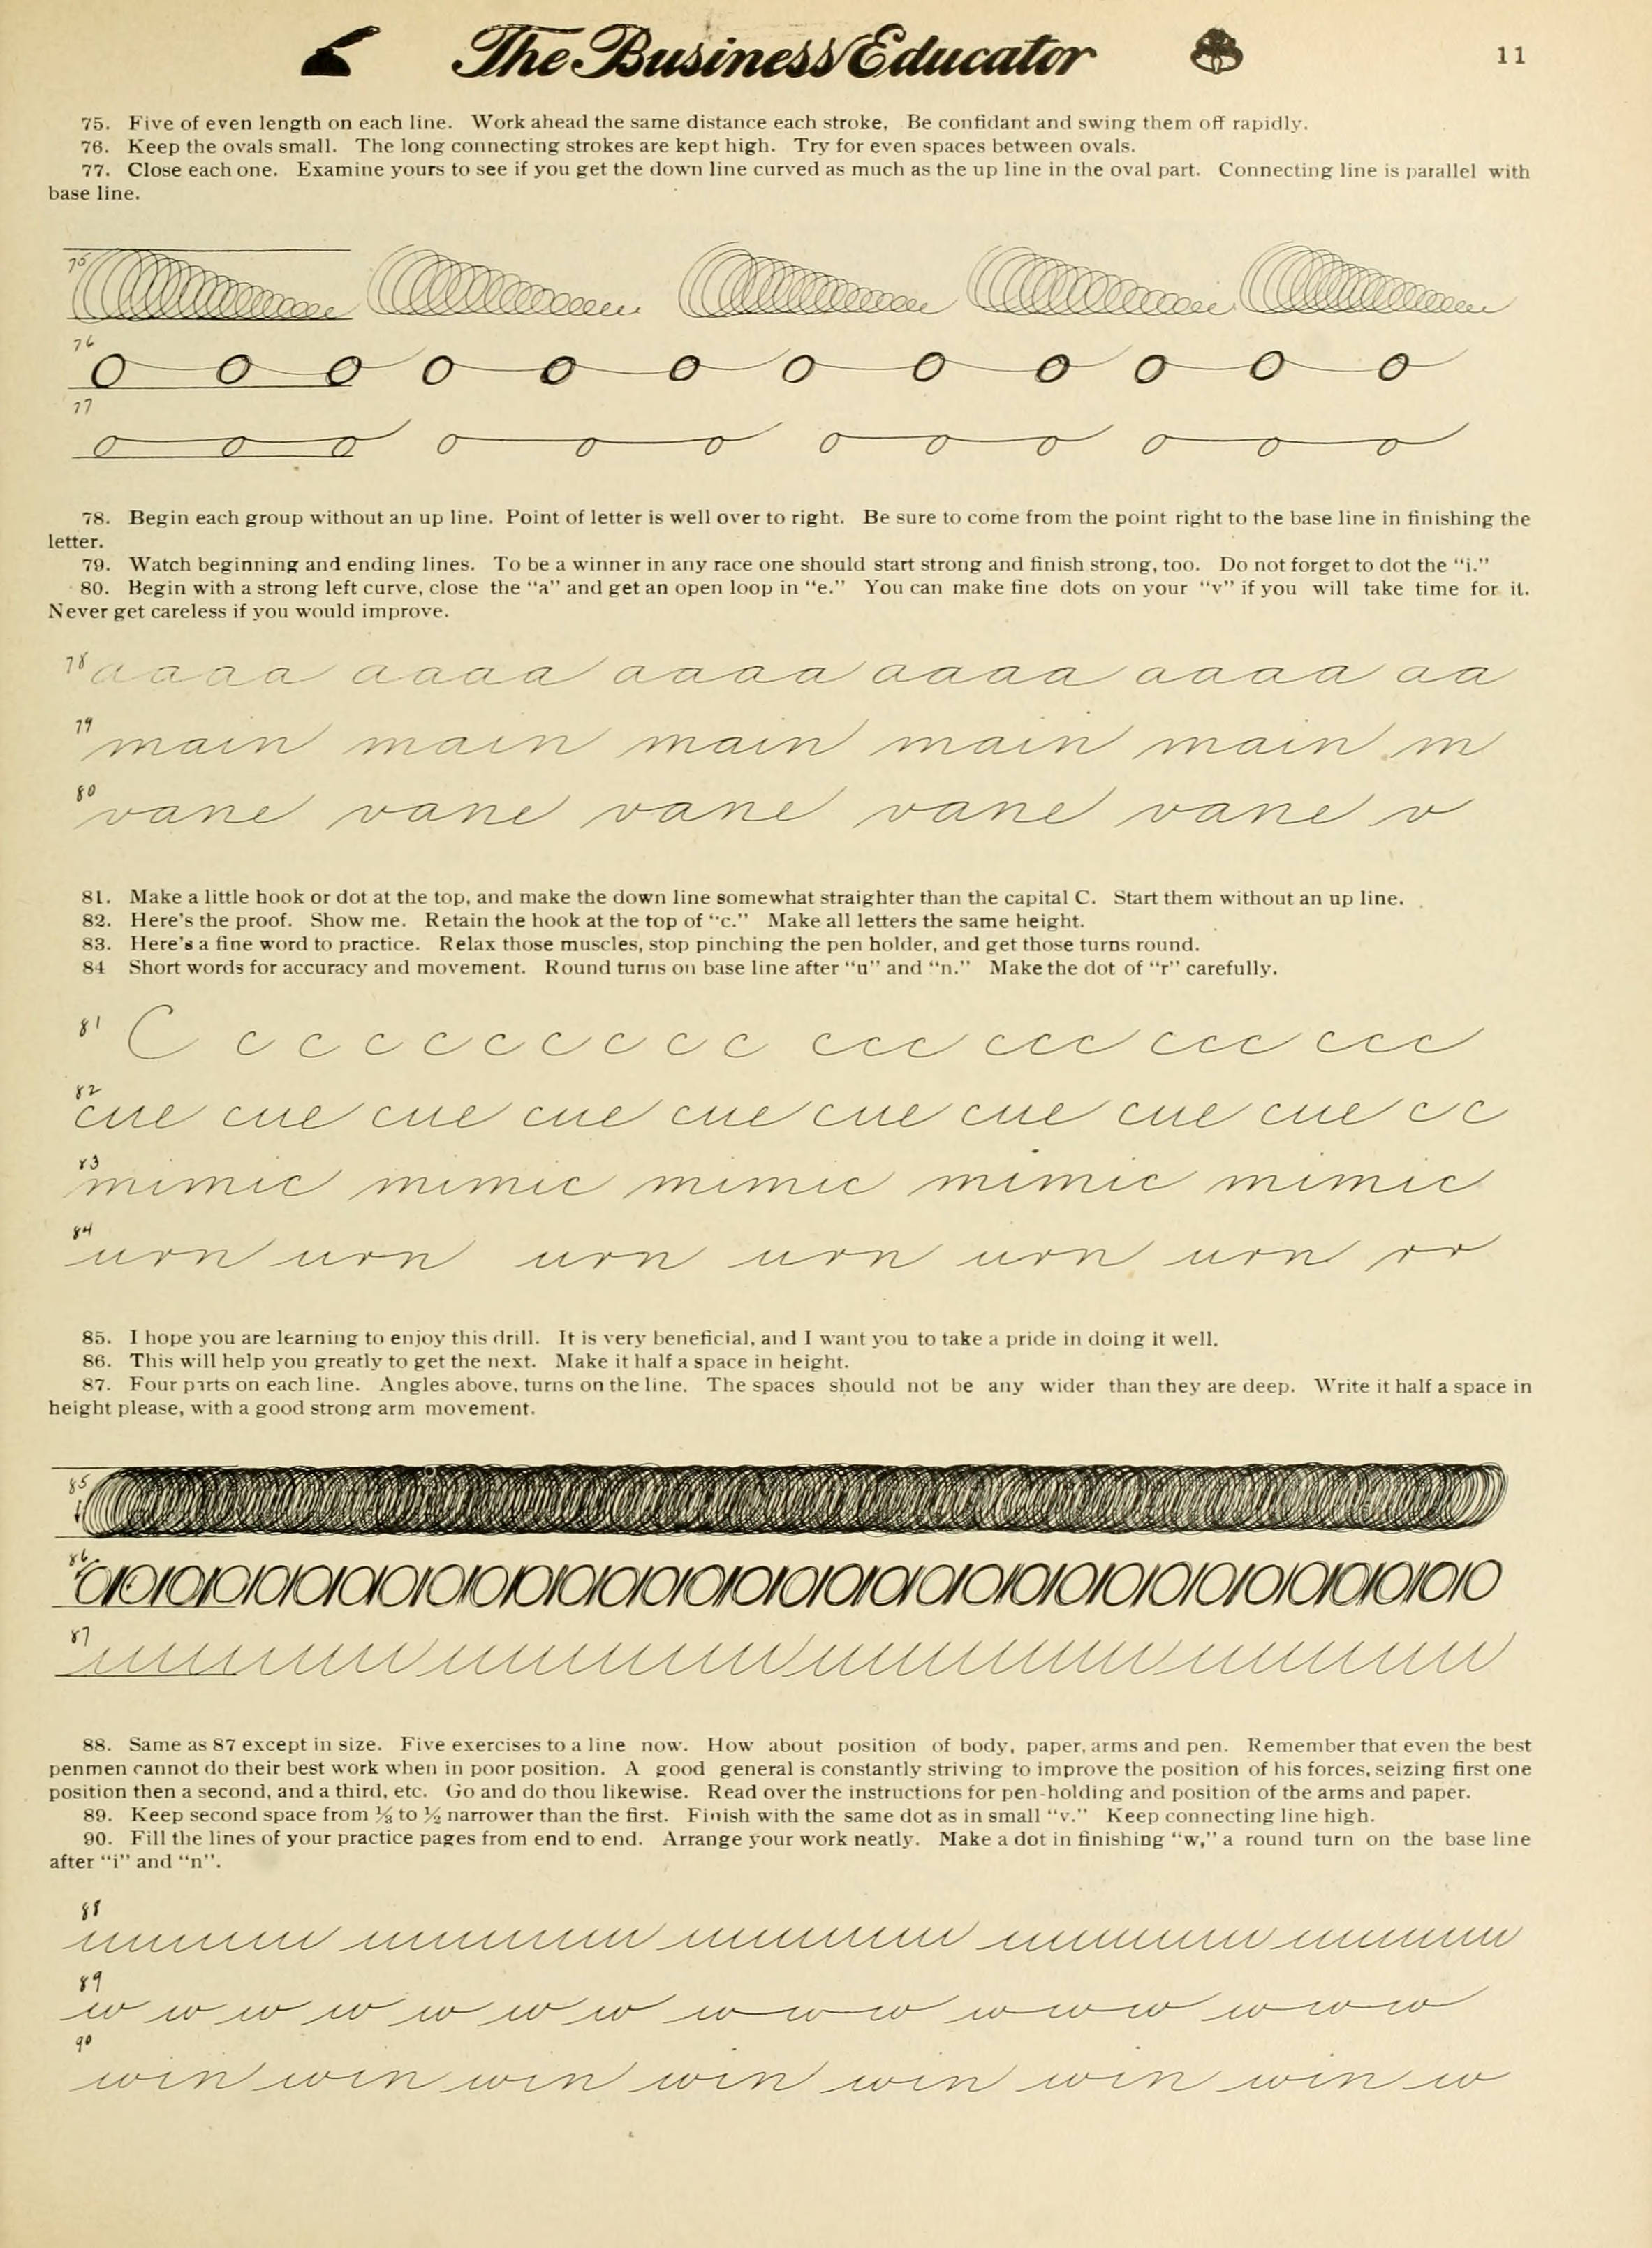 The Business Educator 11
75. Five of even length on each line. Work ahead the same distance each stroke, Be confidant and swing them off rapidly.
76. Keep the ovals small. The long connecting strokes are kept high. Try for even spaces between ovals.
77. Close each one. Examine yours to see if you get the down line curved as much as the up line in the oval part. Connecting line is parallel with
base line.
75
76
77
78. Begin each group without an up line. Point of letter is well over to right. Be sure to come from the point right to the base line in finishing the
letter.
79. Watch beginning and ending lines. To be a winner in any race one should start strong and finish strong, too. Do not forget to dot the "i."
80. Begin with a strong left curve, close the "a" and get an open loop in "e." You can make fine dots on your "v" if you will take time for it.
Never get careless if you would improve.
78 aaaa aaaa aaaa aaaa aaaa aa
79 main main main main main m
80 vane vane vane vane vane v
81. Make a little hook or dot at the top, and make the down line somewhat straighter than the capital C. Start them without an up line.
82. Here's the proof. Show me. Retain the hook at the top of "c." Make all letters the same height.
83. Here's a fine word to practice. Relax those muscles, stop pinching the pen holder, and get those turns round.
84 Short words for accuracy and movement. Round turns on base line after "u" and "n." Make the dot of "r" carefully.
81 C c c c c c c c c c ccc ccc ccc ccc
82 cue cue cue cue cue cue cue cue cue c c
83 mimic mimic mimic mimic mimic
84 urn urn urn urn urn urn rr
85. I hope you are learning to enjoy this drill. It is very beneficial, and I want you to take a pride in doing it well.
86. This will help you greatly to get the next. Make it half a space in height.
87. Four parts on each line. Angles above, turns on the line. The spaces should not be any wider than they are deep. Write it half a space in
height please, with a good strong arm movement.
85
86
87
88. Same as 87 except in size. Five exercises to a line now. How about position of body, paper, arms and pen. Remember that even the best
penmen cannot do their best work when in poor position. A good general is constantly striving to improve the position of his forces, seizing first one
position then a second, and a third, etc. Go and do thou likewise. Read over the instructions for pen-holding and position of the arms and paper.
89. Keep second space from ⅓ to ½ narrower than the first. Finish with the same dot as in small "v." Keep connecting line high.
90. Fill the lines of your practice pages from end to end. Arrange your work neatly. Make a dot in finishing "w," a round turn on the base line
after "i" and "n".
88
89 w w w w w w w www www www
90 win win win win win win win w